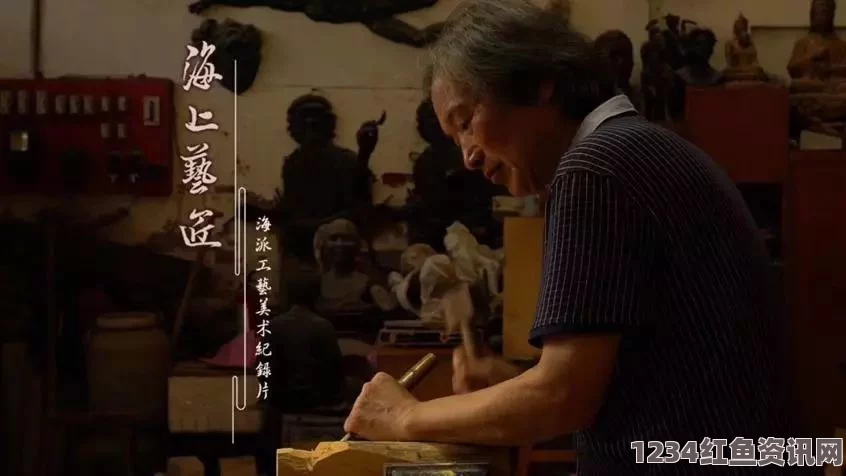 海上藝匠
海派工藝美术紀録片
1234红鱼资讯网